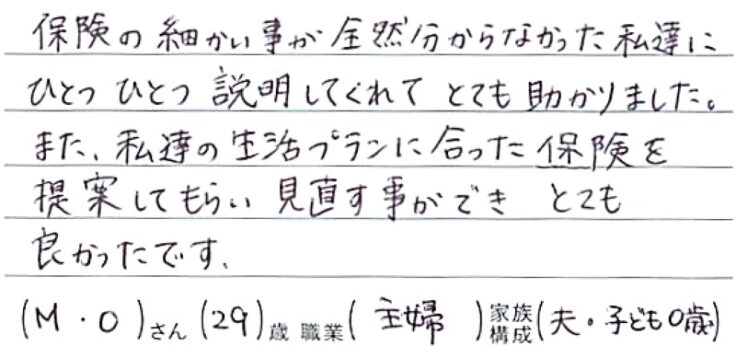 保険の細かい事が全然分からなかった私達に
ひとつひとつ説明してくれてとても助かりました。
また、私達の生活プランに合った保険を
提案してもらい見直す事ができ とても
良かったです。
(M・O)さん(29)歳 職業(主婦)家族構成(夫・子ども0歳)